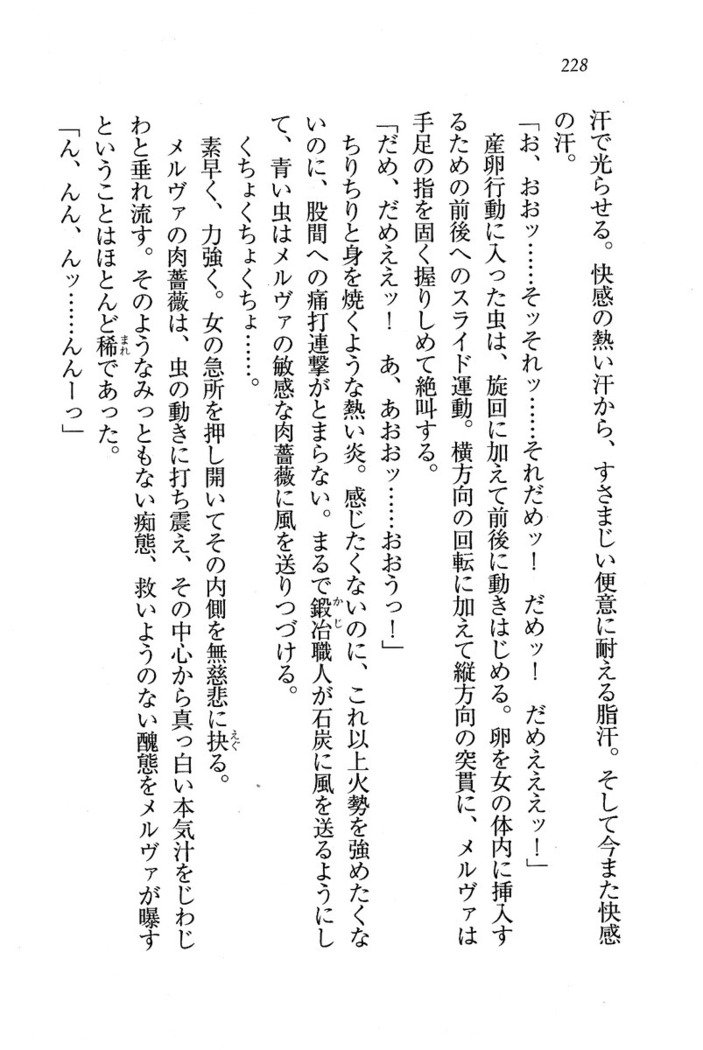 228
汗で光らせる。快感の熱い汗から、すさまじい便意に耐える脂汗。そして今また快感
の汗。
「お、おおッ……そッそれッ……それだめッ！　だめッ！　だめえええッ！」
産卵行動に入った虫は、旋回に加えて前後に動きはじめる。卵を女の体内に挿入す
るための前後へのスライド運動。横方向の回転に加えて縦方向の突貫に、メルヴァは
手足の指を固く握りしめて絶叫する。
「だめ、だめええッ！　あ、あおおッ……おおうっ！」
ちりちりと身を焼くような熱い炎。感じたくないのに、これ以上火勢を強めたくな
いのに、股間への痛打連撃がとまらない。まるで鍛冶職人が石炭に風を送るようにし
て、青い虫はメルヴァの敏感な肉薔薇に風を送りつづける。
くちょくちょくちょ……。
素早く、力強く。女の急所を押し開いてその内側を無慈悲に抉る。
メルヴァの肉薔薇は、虫の動きに打ち震え、その中心から真っ白い本気汁をじわじ
わと垂れ流す。そのようなみっともない痴態、救いようのない醜態をメルヴァが曝す
ということはほとんど稀であった。
「ん、んん、んッ……んんーっ」